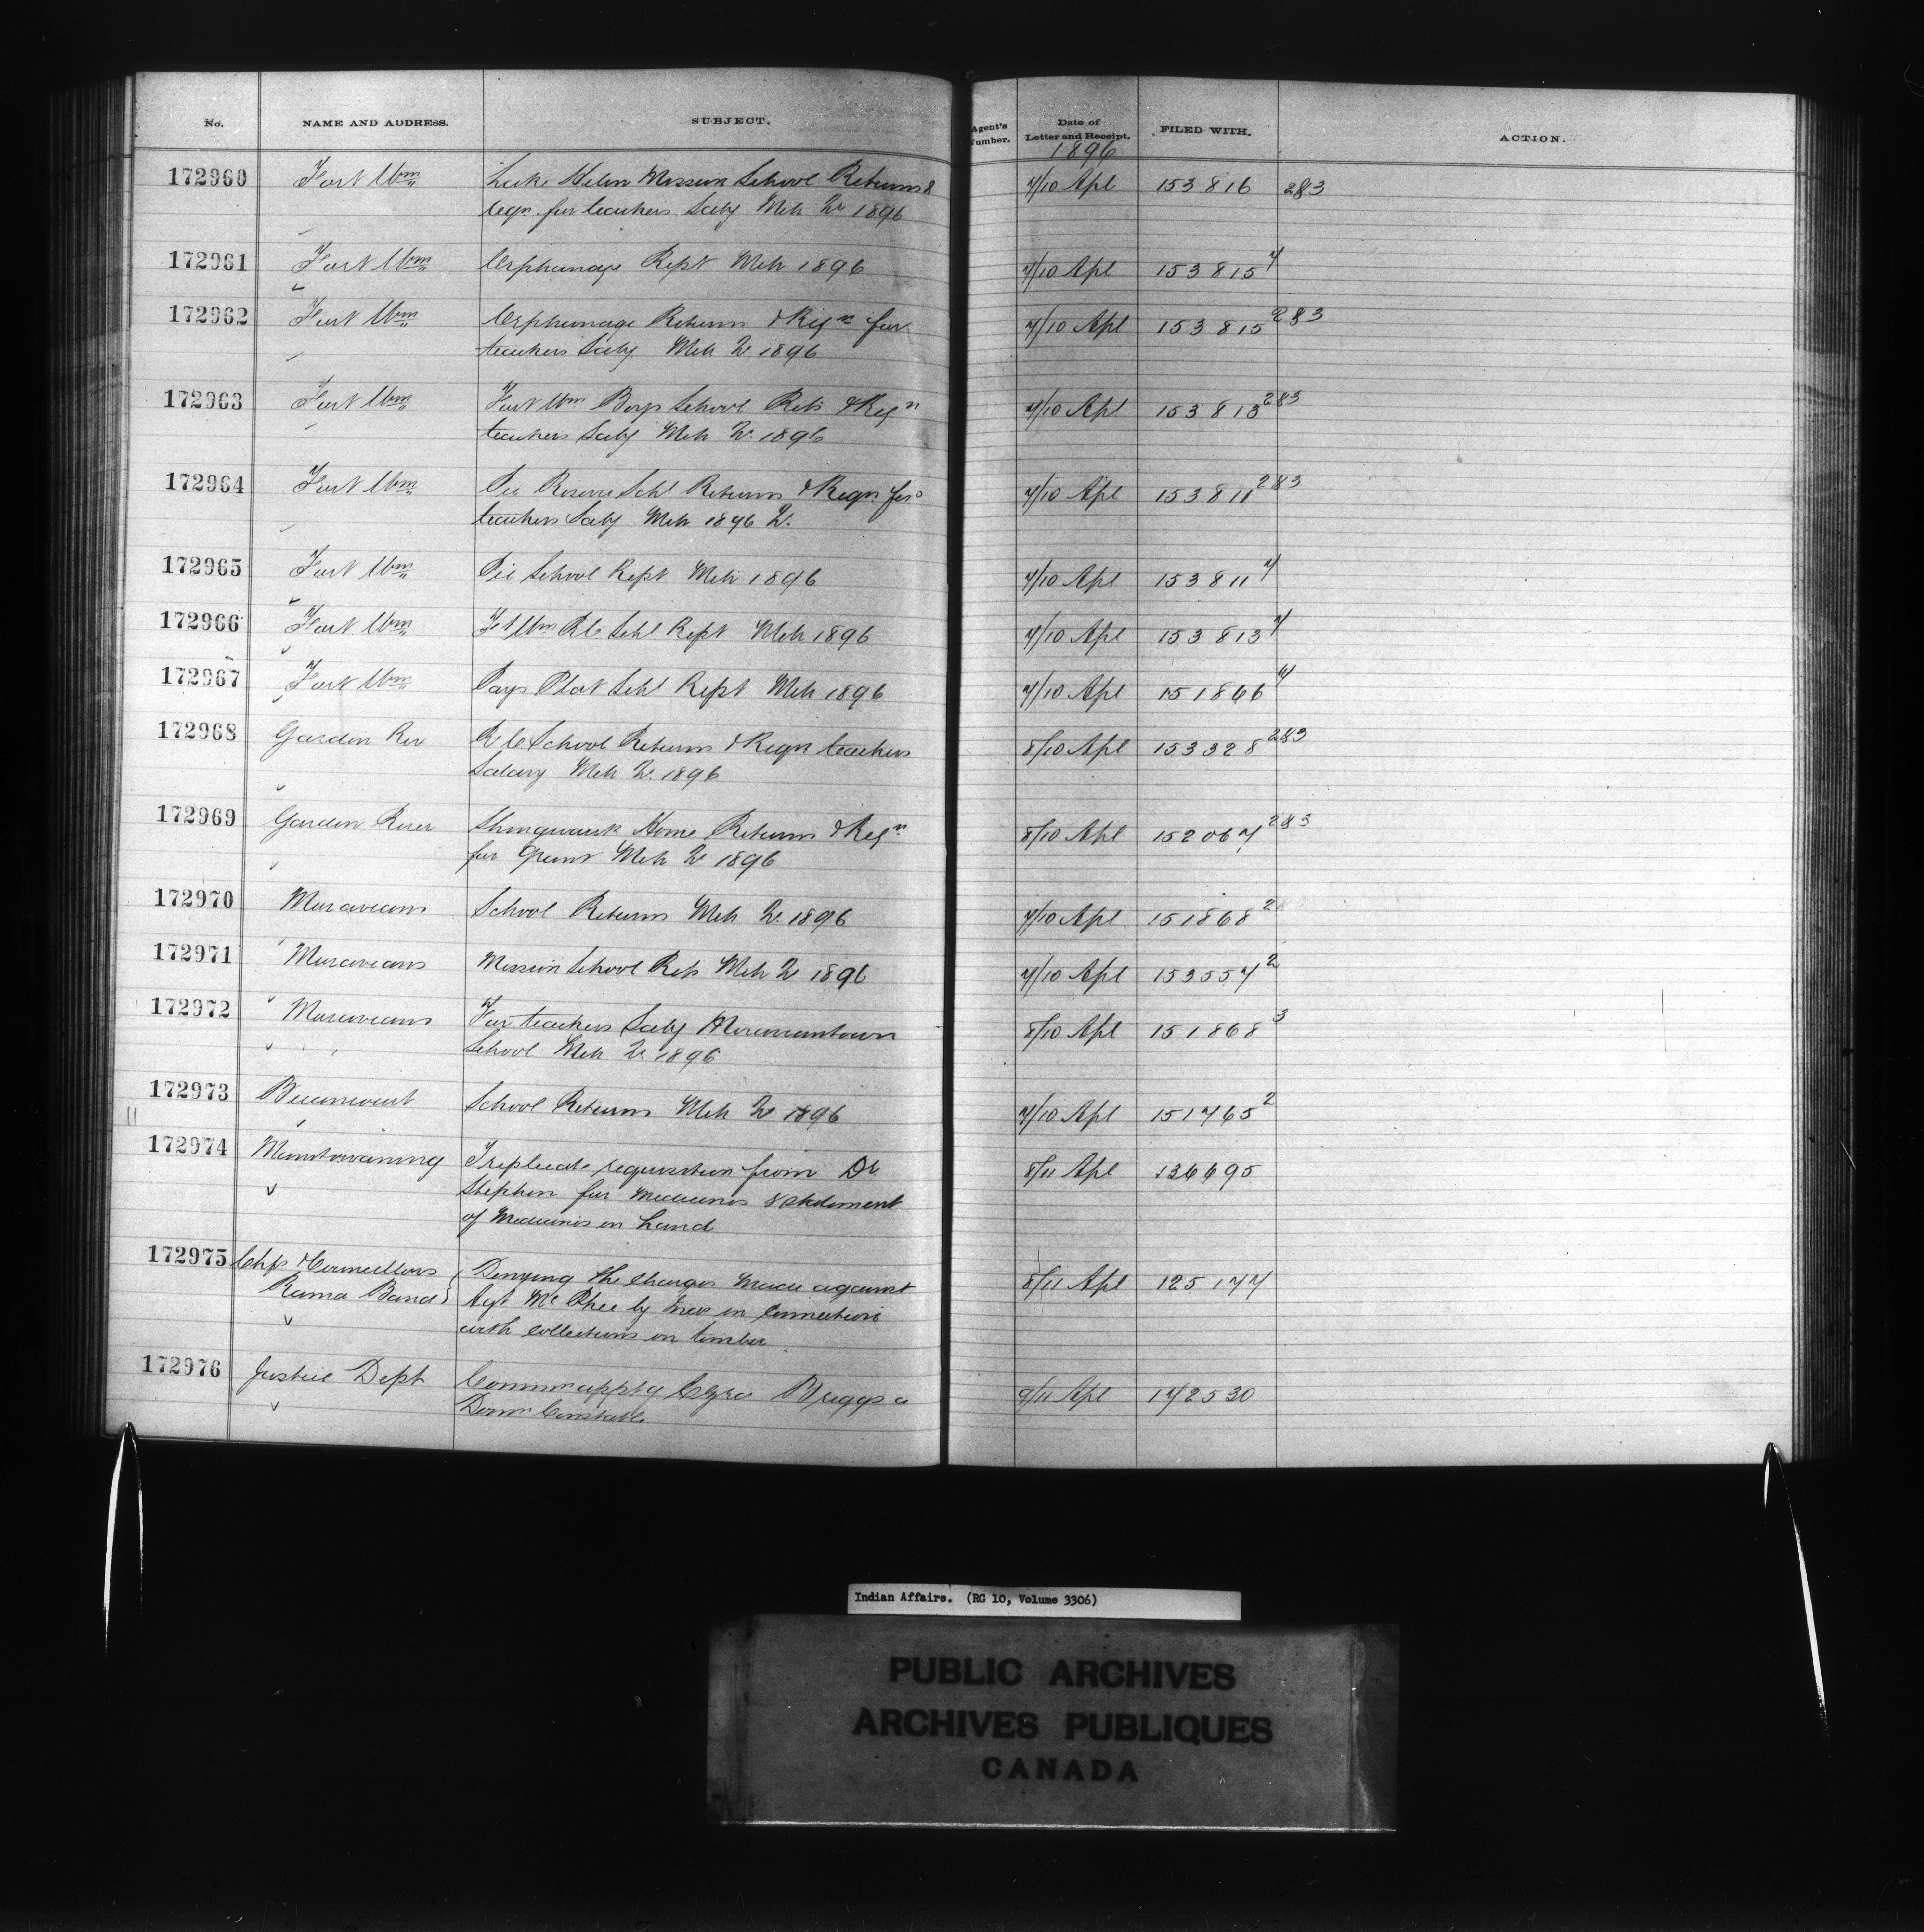 No. NAME AND ADDRESS. SUBJECT. Agent's Number. Date of Letter and Receipt. FILED WITH. ACTION.
1896
172960 Fort Wm Lake Helen Mission School Returns & 7/10 Apl 153816 2&3
reqn for teachers Saly Mch Qr 1896
172961 Fort Wm Orphanage Rept Mch 1896 7/10 Apl 153815 4
172962 Fort Wm Orphanage Returns & Reqn for 7/10 Apl 153815 2&3
teachers Saly Mch Qr 1896
172963 Fort Wm Fort Wm Boys School Rets & Reqn 7/10 Apl 153813 2&3
teachers Saly Mch Qr 1896
172964 Fort Wm Pic Reserve Schl Returns & Reqn for 7/10 Apl 153811 2&3
teachers Saly Mch 1896 Qr
172965 Fort Wm Pic School Rept Mch 1896 7/10 Apl 153811 4
172966 Fort Wm Ft Wm RC Schl Rept Mch 1896 7/10 Apl 153813 4
172967 Fort Wm Pays Plat Schl Rept Mch 1896 7/10 Apl 151866
172968 Garden Riv RC School Returns & Reqn teachers 8/10 Apl 153328 2&3
Salary Mch Qr 1896
172969 Garden River Shingwauk Home Returns & Reqn 8/10 Apl 152067 2&3
for Grant Mch Qr 1896
172970 Moravians School Returns Mch Qr 1896 7/10 Apl 151868 2
172971 Moravians Mission School Rets Mch Qr 1896 7/10 Apl 153557 2
172972 Moravians For teachers Saly Moraviantown 8/10 Apl 151868 3
School Mch Qr 1896
172973 Becancourt School Returns Mch Qr 1896 7/10 Apl 151765 2
172974 Manitowaning Triplicate requisition from Dr 8/11 Apl 136695
Stephen for Medicines & statement
of Medicines on hand
172975 Chfs & Councillors Denying the charges made against 8/11 Apl 125177
Rama Band Agt Mc Phee by in connection
with collections on timber
172976 Justice Dept Commn apptg Briggs a 9/11 Apl 172530
Domn Constable
Indian Affairs. (RG 10, Volume 3306)
PUBLIC ARCHIVES
ARCHIVES PUBLIQUES
CANADA